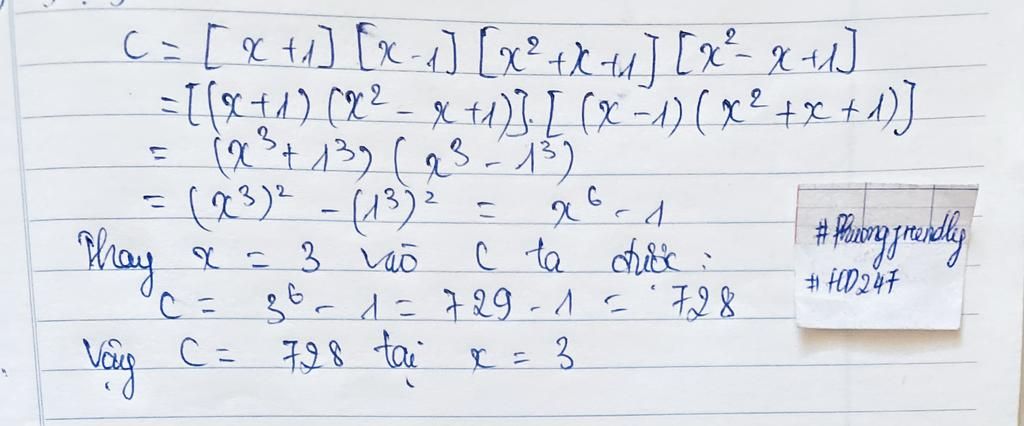 C = [x+1] [x-1] [x²+x+1] [x²-x+1]
= [(x+1)(x²-x+1)].[(x-1)(x²+x+1)]
= (x³+1³)(x³-1³)
= (x³)² - (1³)² = x⁶ - 1
Thay x = 3 vào C ta được :
C = 3⁶ - 1 = 729 - 1 = 728
Vậy C = 728 tại x = 3
#Phuongfriendly
#FCD247